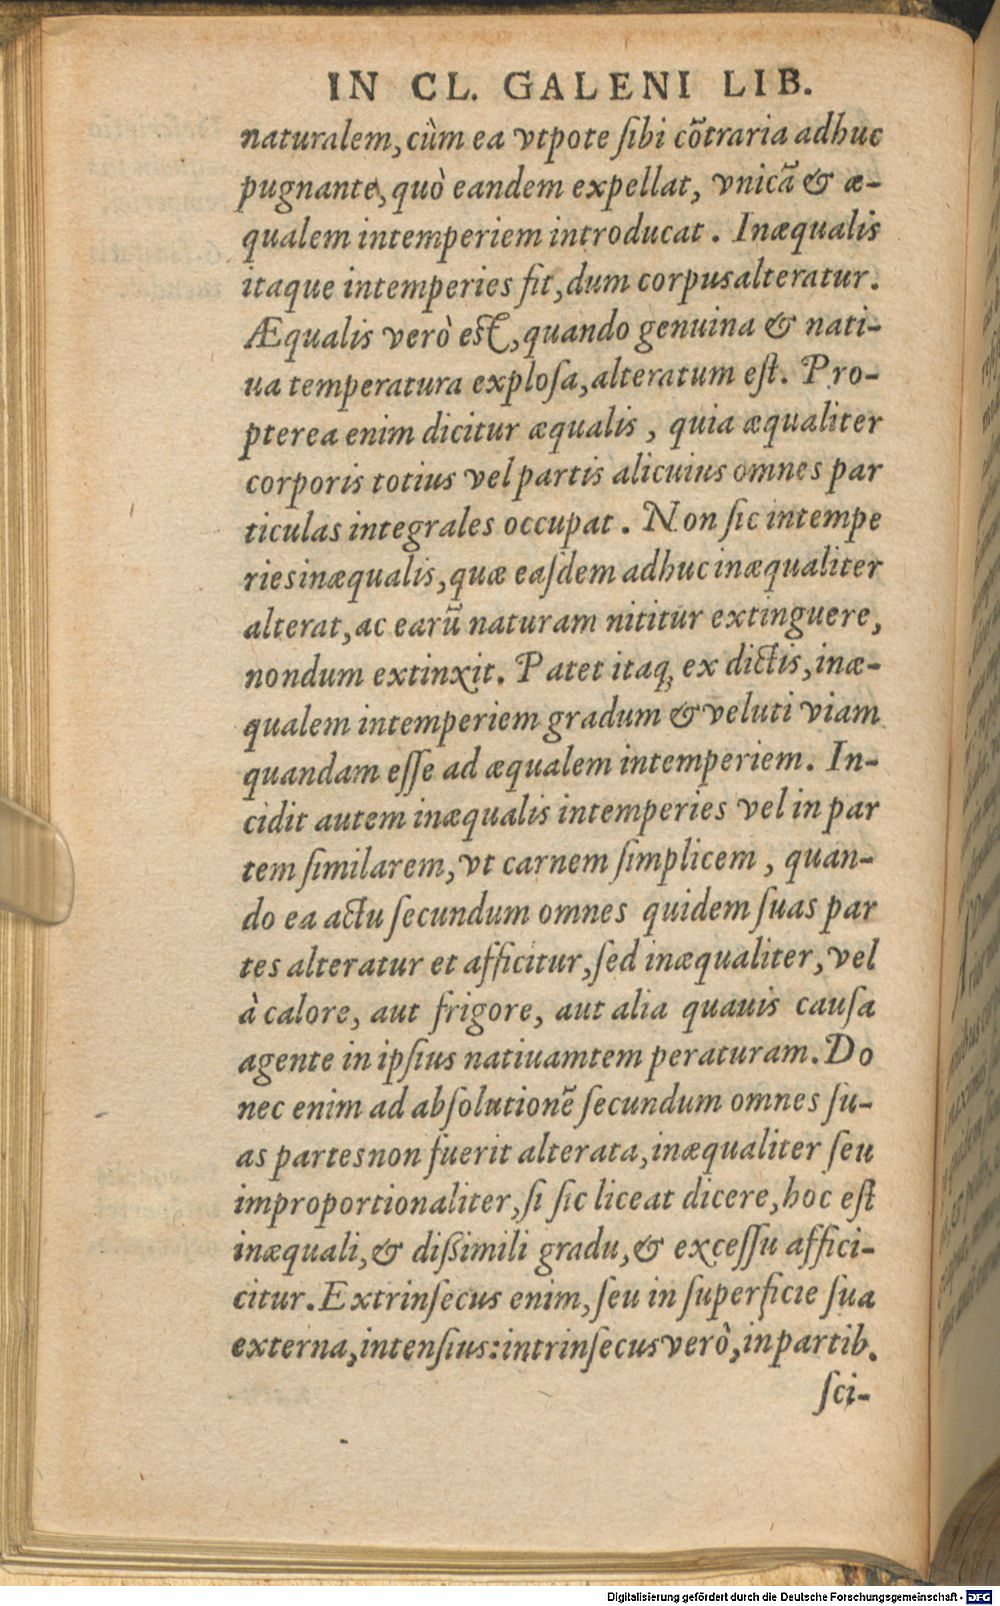 IN CL. GALENI LIB.
naturalem, cùm ea vtpote ſibi cõtraria adhuc
pugnante, quò eandem expellat, vnicã & æ-
qualem intemperiem introducat. Inæqualis
itaque intemperies fit, dum corpus alteratur.
Æqualis verò eſt, quando genuina & nati-
ua temperatura exploſa, alteratum eſt. Pro-
pterea enim dicitur æqualis, quia æqualiter
corporis totius vel partis alicuius omnes par
ticulas integrales occupat. Non ſic intempe
ries inæqualis, quæ eaſdem adhuc inæqualiter
alterat, ac earũ naturam nititur extinguere,
nondum extinxit. Patet itaq; ex dictis, inæ-
qualem intemperiem gradum & veluti viam
quandam eſſe ad æqualem intemperiem. In-
cidit autem inæqualis intemperies vel in par
tem ſimilarem, vt carnem ſimplicem, quan-
do ea actu ſecundum omnes quidem ſuas par
tes alteratur et afficitur, ſed inæqualiter, vel
à calore, aut frigore, aut alia quauis cauſa
agente in ipſius natiuamtem peraturam. Do
nec enim ad abſolutionẽ ſecundum omnes ſu-
as partes non fuerit alterata, inæqualiter ſeu
improportionaliter, ſi ſic liceat dicere, hoc eſt
inæquali, & diſsimili gradu, & exceſſu affici-
citur. Extrinſecus enim, ſeu in ſuperficie ſua
externa, intenſius: intrinſecus verò, in partib.
ſci-
Digitalisierung gefördert durch die Deutsche Forschungsgemeinschaft - DFG